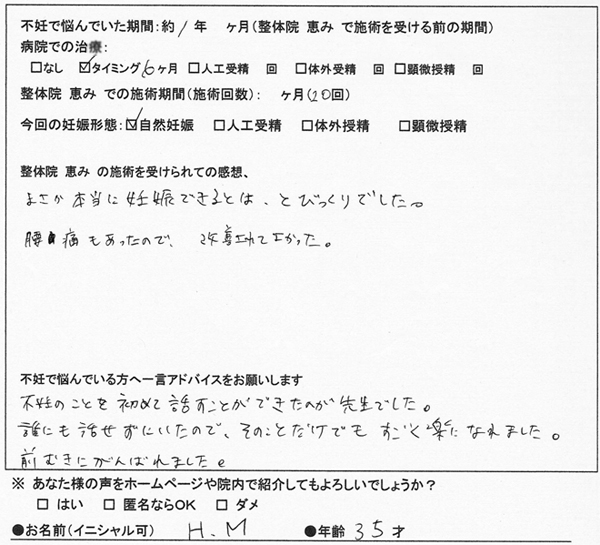 不妊で悩んでいた期間:約1年　ヶ月(整体院 恵み で施術を受ける前の期間)
病院での治療:
□なし ☑タイミング6ヶ月 □人工受精　回 □体外受精　回 □顕微授精　回
整体院 恵み での施術期間(施術回数):　ヶ月(20回)
今回の妊娠形態:☑自然妊娠 □人工受精 □体外授精 □顕微授精
整体院 恵み の施術を受けられての感想、
まさか本当に妊娠できるとは、とびっくりでした。
腰痛もあったので、改善されてよかった。
不妊で悩んでいる方へ一言アドバイスをお願いします
不妊のことを初めて話すことができたのが先生でした。
誰にも話せずにいたので、そのことだけでもすごく楽になれました。
前むきにがんばれました。
※ あなた様の声をホームページや院内で紹介してもよろしいでしょうか？
□ はい □ 匿名ならOK □ ダメ
●お名前(イニシャル可) H.M ●年齢 35才